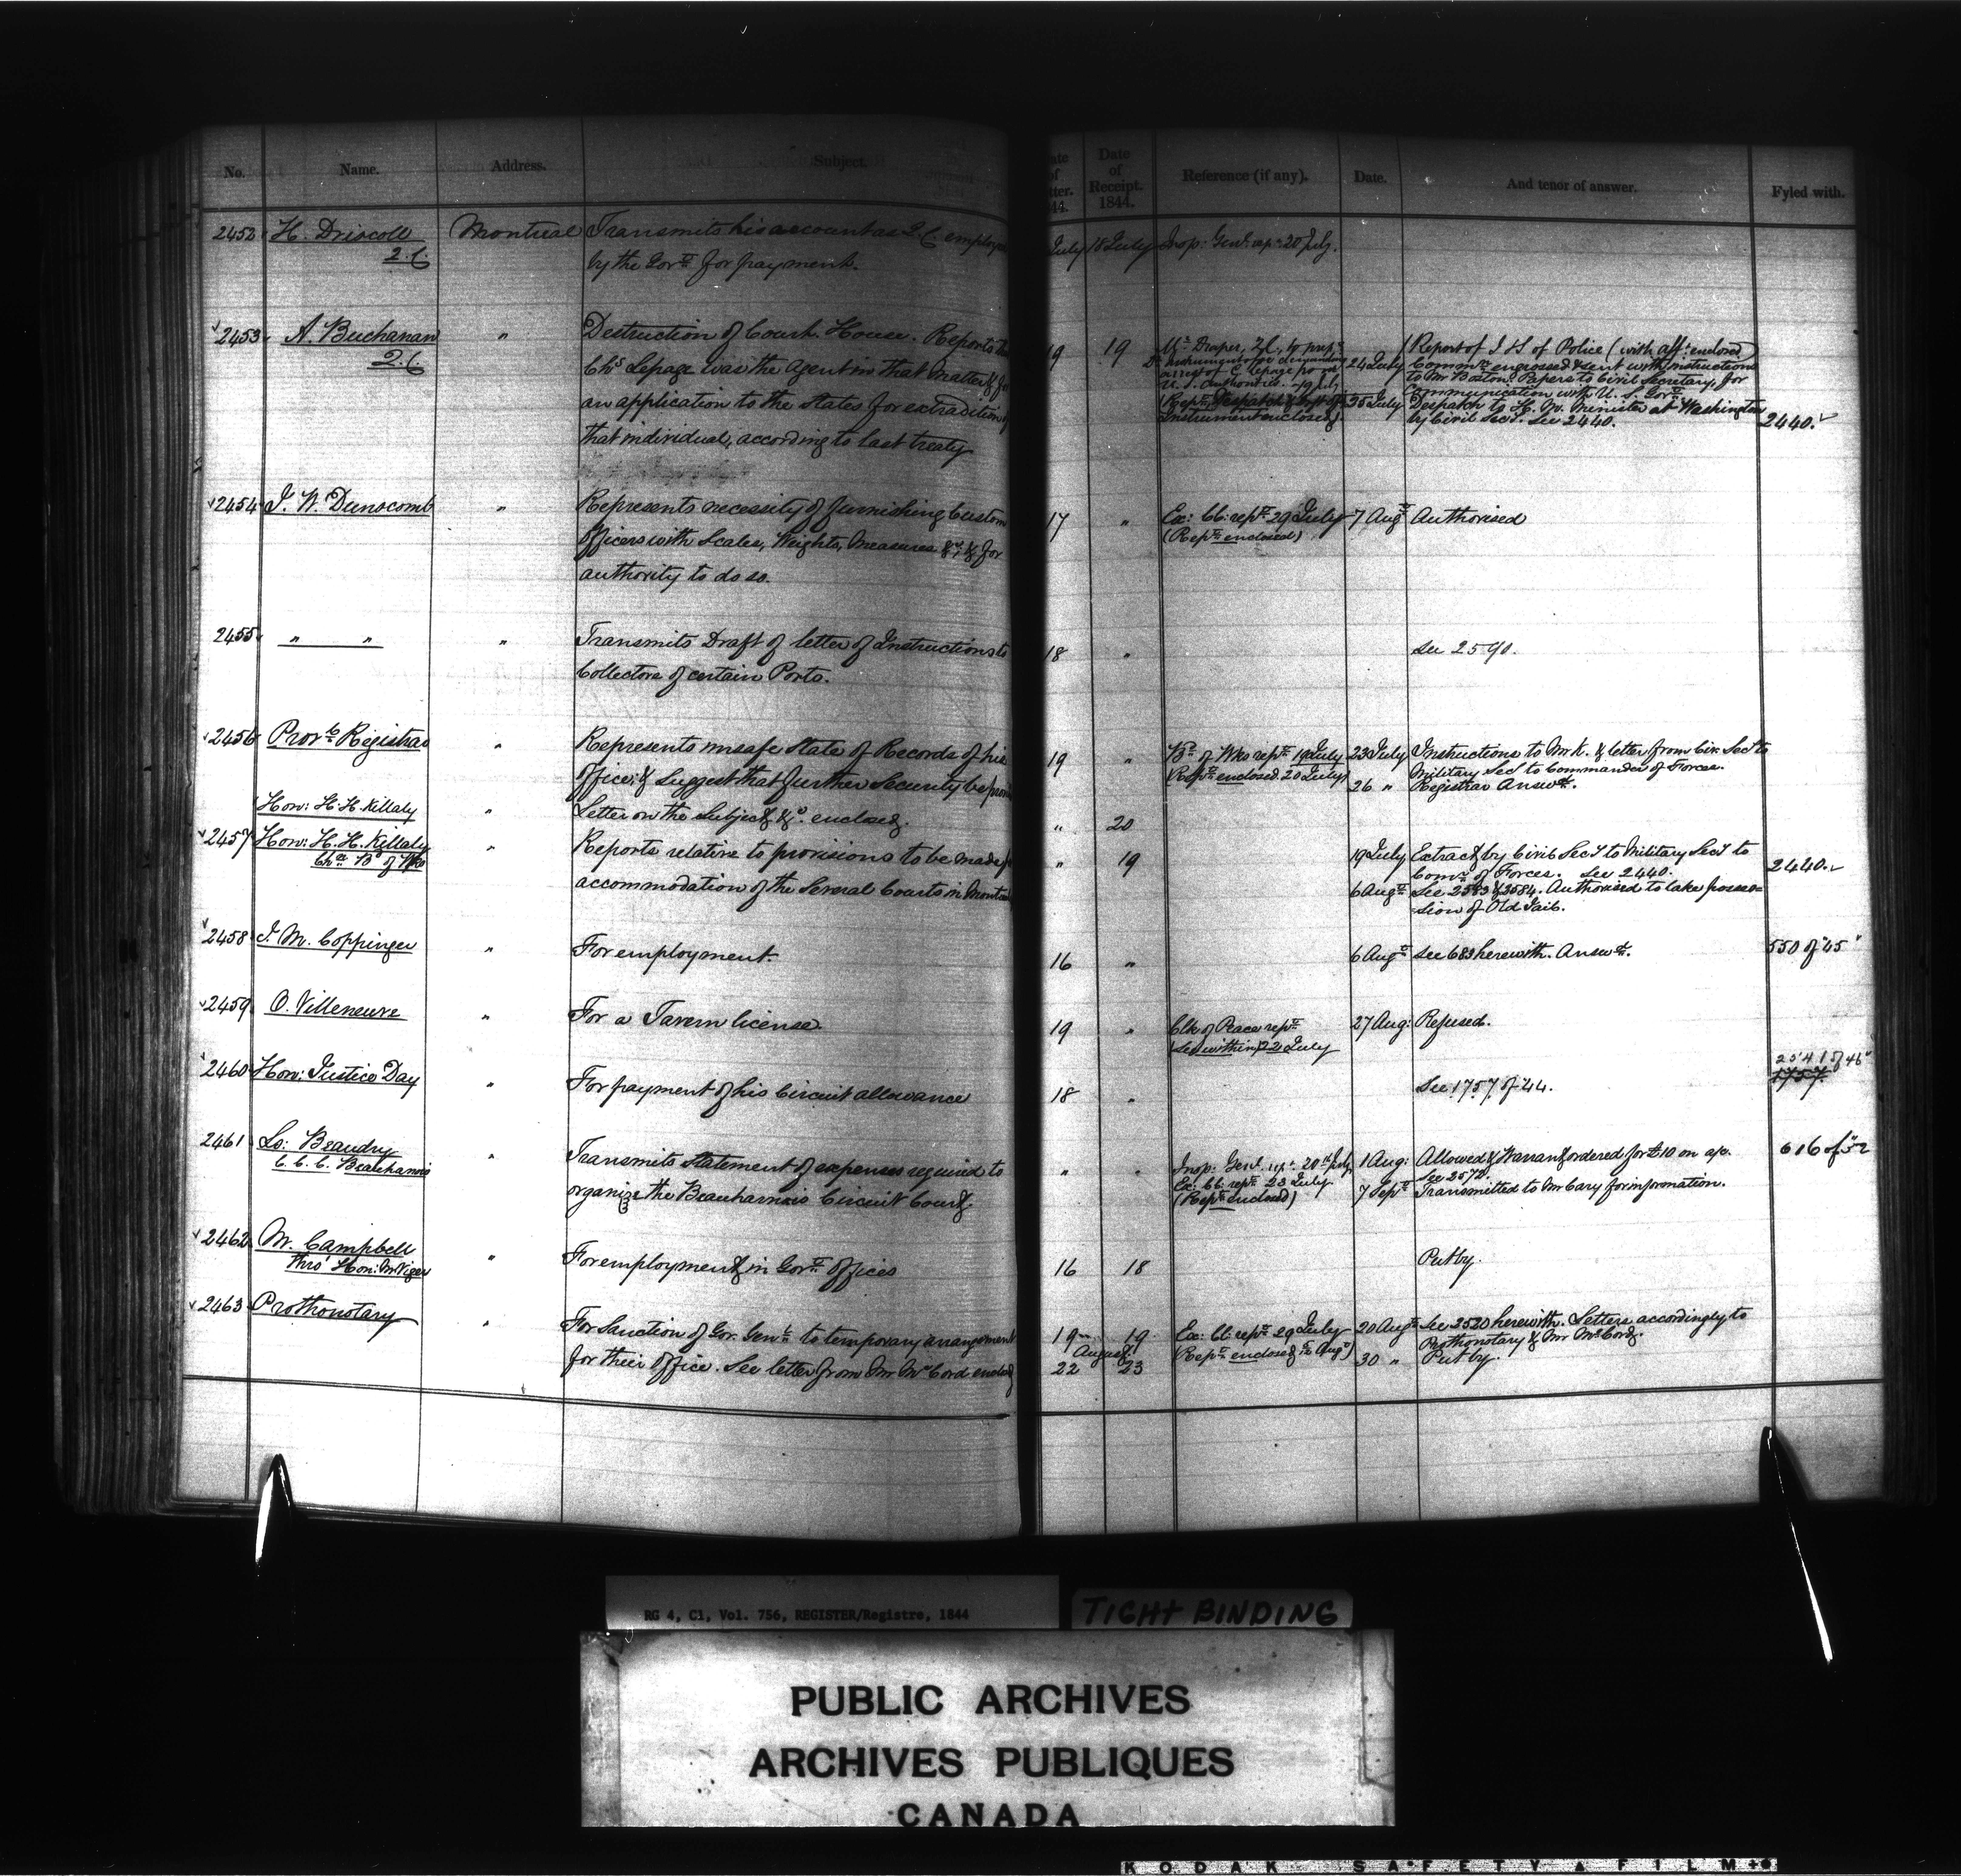 No.
Name.
Address.
Subject.
Date of Receipt. 1844.
Reference (if any).
Date.
And tenor of answer.
Fyled with.
2452 H. Driscoll Montreal Transmits his account as Q.C. employed July 18 July Insp: Genl. rep: 20 July.
Q.C. by the Govt. for payment.
2453 A. Buchanan " Destruction of Court House. Reports 19 19 Mr. Draper, Q.C., to prep: Report of I & S of Police (with aff: enclosed)
Q.C. Chs. Lepage was the Agent in that matter & for arrest of C. Lepage from 24 July Commn. engrossed & sent with instructions
U.S. Authorities. 19 July to Mr Boston. Papers to Civil Secretary, for
an application to the States for extradition of communication with U.S. Govt.
instrument enclosed 25 July Despatch to H. M. Minister at Washington
that individual, according to last treaty by Civil Sect. See 2440. 2440.
2454 J. W. Dunscomb " Represents necessity of furnishing Custom 17 " Ex: Cl: rept. 29 July 7 Augt. Authorised
Officers with Scales, Weights, Measures &c. & for (Rept. enclosed)
authority to do so.
2455 " " " Transmits Draft of letter of Instructions to 18 " See 2590.
Collectors of certain Ports.
2456 Provl. Registrar " Represents unsafe State of Records of his 19 " Bd. of Wks rept. 19 July 23 July Instructions to Mr K. & letter from Civ. Sect. to
Office, & Suggest that further Security be (Rept. enclosed. 20 July) Military Sec to Commander of Forces.
26 " Registrar Answd.
Hon: H. H. Killaly " Letter on the Subject &c. enclosed. " 20
2457 Hon: H. H. Killaly " Reports relative to provisions to be made " 19 19 July Extract by Civil Secy to Military Secy to
Chn. Bd of Wks Comr. of Forces. See 2440. 2440.
accommodation of the Several Courts in Montreal 6 Augt. See 2583 & 2584. Authorised to take posses-
sion of Old Jail.
2458 J. M. Coppinger " For employment. 16 " 6 Augt. See 683 herewith. Answd. 550 of "45"
2459 O. Villeneuve " For a Tavern license. 19 " Clk of Peace rept. 27 Aug: Refused.
(See within) 22 July
2460 Hon: Justice Day " For payment of his Circuit allowance 18 " See 1757 of 44. 2541 of 46"
1757
2461 Ls: Beaudry " Transmits Statement of expenses required to " " Insp: Genl. rep: 20th July 1 Aug: Allowed & Warrant ordered for £10 on a/c. 616 of 52
C. C. C. Beauharnois Ex: Cl: rept. 23 July See 2572.
organize the Beauharnois Circuit Court. (Rept. enclosed) 7 Sept. Transmitted to Mr Cary for information.
2462 W. Campbell " For employment in Govt. Offices 16 18 Put by.
Thro' Hon: Mr Viger
2463 Prothonotary " For Sanction of Gov. Genl. to temporary arrangement 19 19 Ex: Cl: rept. 29 July 20 Augt. See 2520 herewith. Letters accordingly to
August Prothonotary & Mr McCord.
for their Office. See letter from Mr McCord enclosed 22 23 30 " Put by.
RG 4, C1, Vol. 756, REGISTER/Registre, 1844
TIGHT BINDING
PUBLIC ARCHIVES
ARCHIVES PUBLIQUES
CANADA
KODAK SAFETY FILM